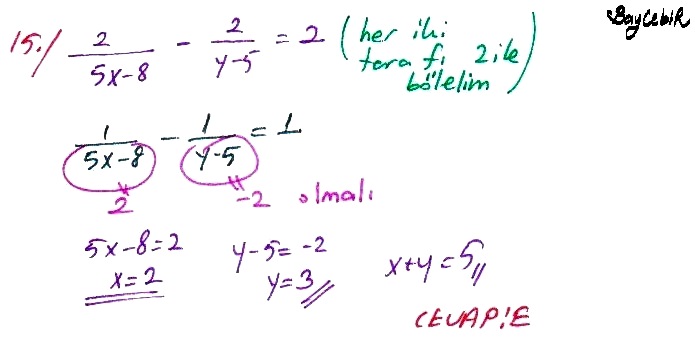 BayCebir
15./ 2/(5x-8) - 2/(y-5) = 2 (her iki tarafı 2 ile bölelim)
1/(5x-8) - 1/(y-5) = 1
2 -2 olmalı
5x-8=2 y-5=-2 x+y=5
x=2 y=3
CEVAP:E